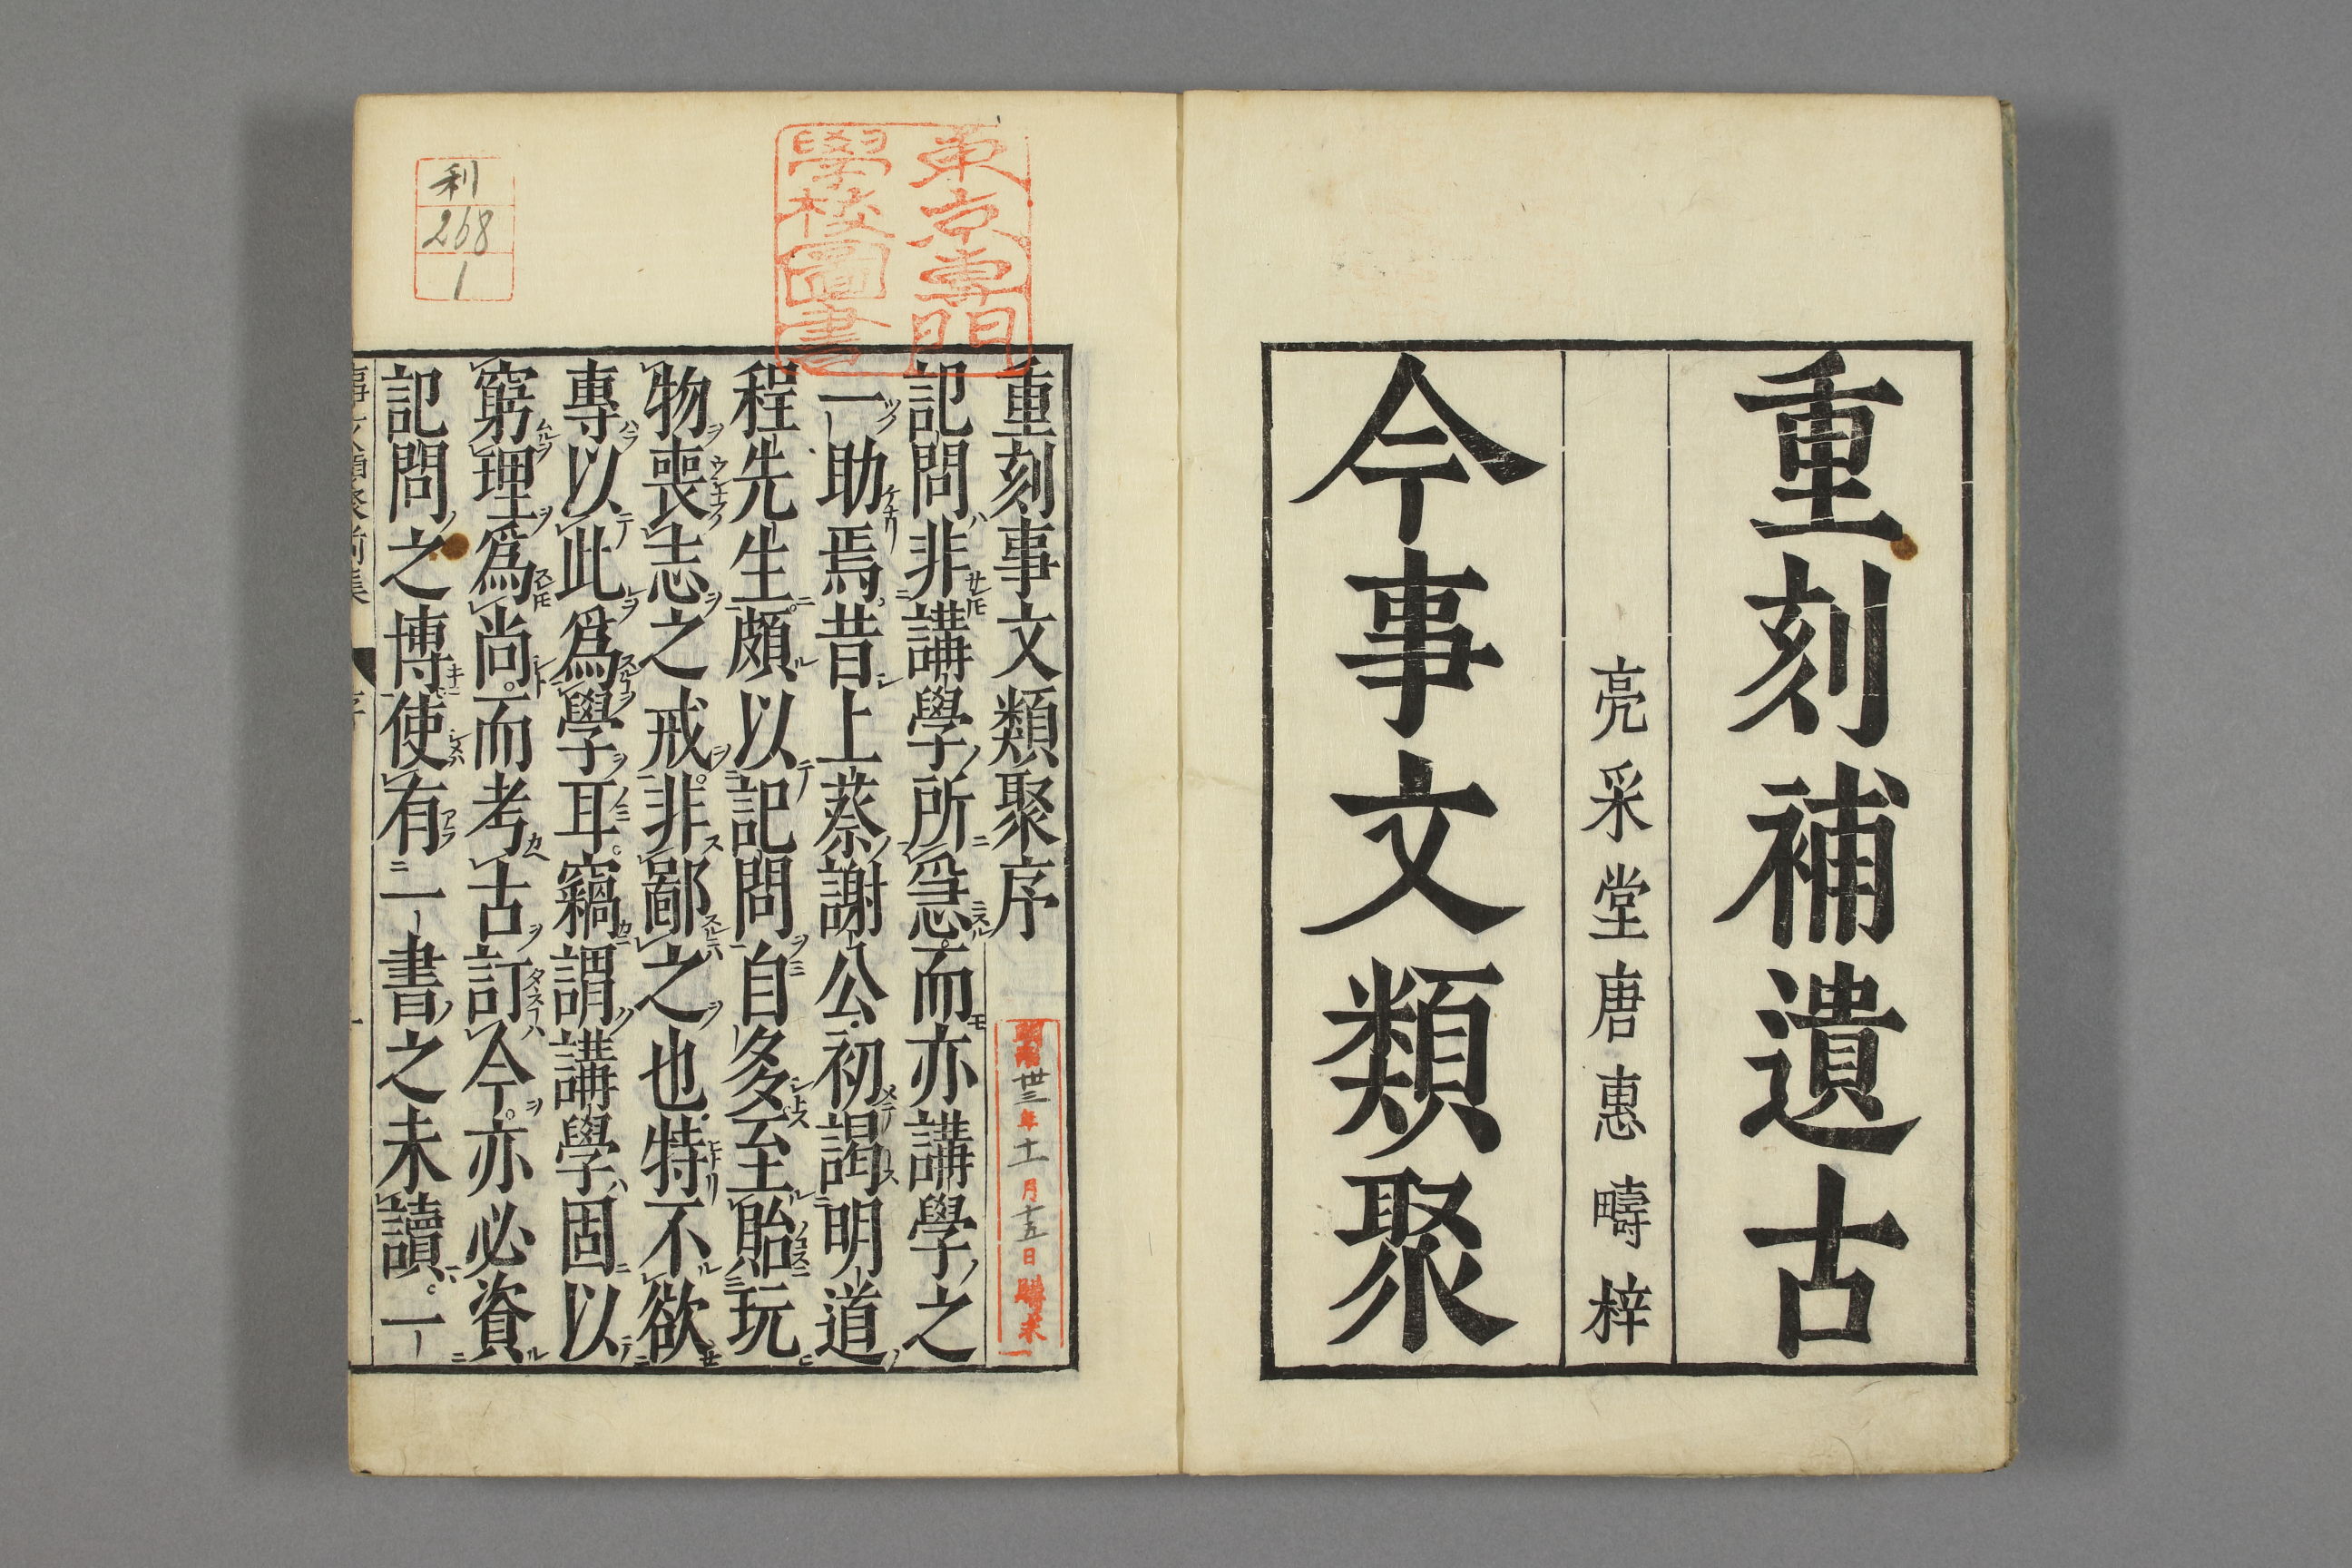 重刻補遺古
亮采堂唐惠疇梓
今事文類聚
東京專門
學校圖書
利
268
1
重刻事文類聚序
明治卅三年十一月十五日購求
記問非講學所急而亦講學之
一助焉昔上蔡謝公初謁明道
程先生頗以記問自多至貽玩
物喪志之戒非鄙之也特不欲
專以此爲學耳竊謂講學固以
窮理爲尚而考古訂今亦必資
記問之博使有一書之未讀一